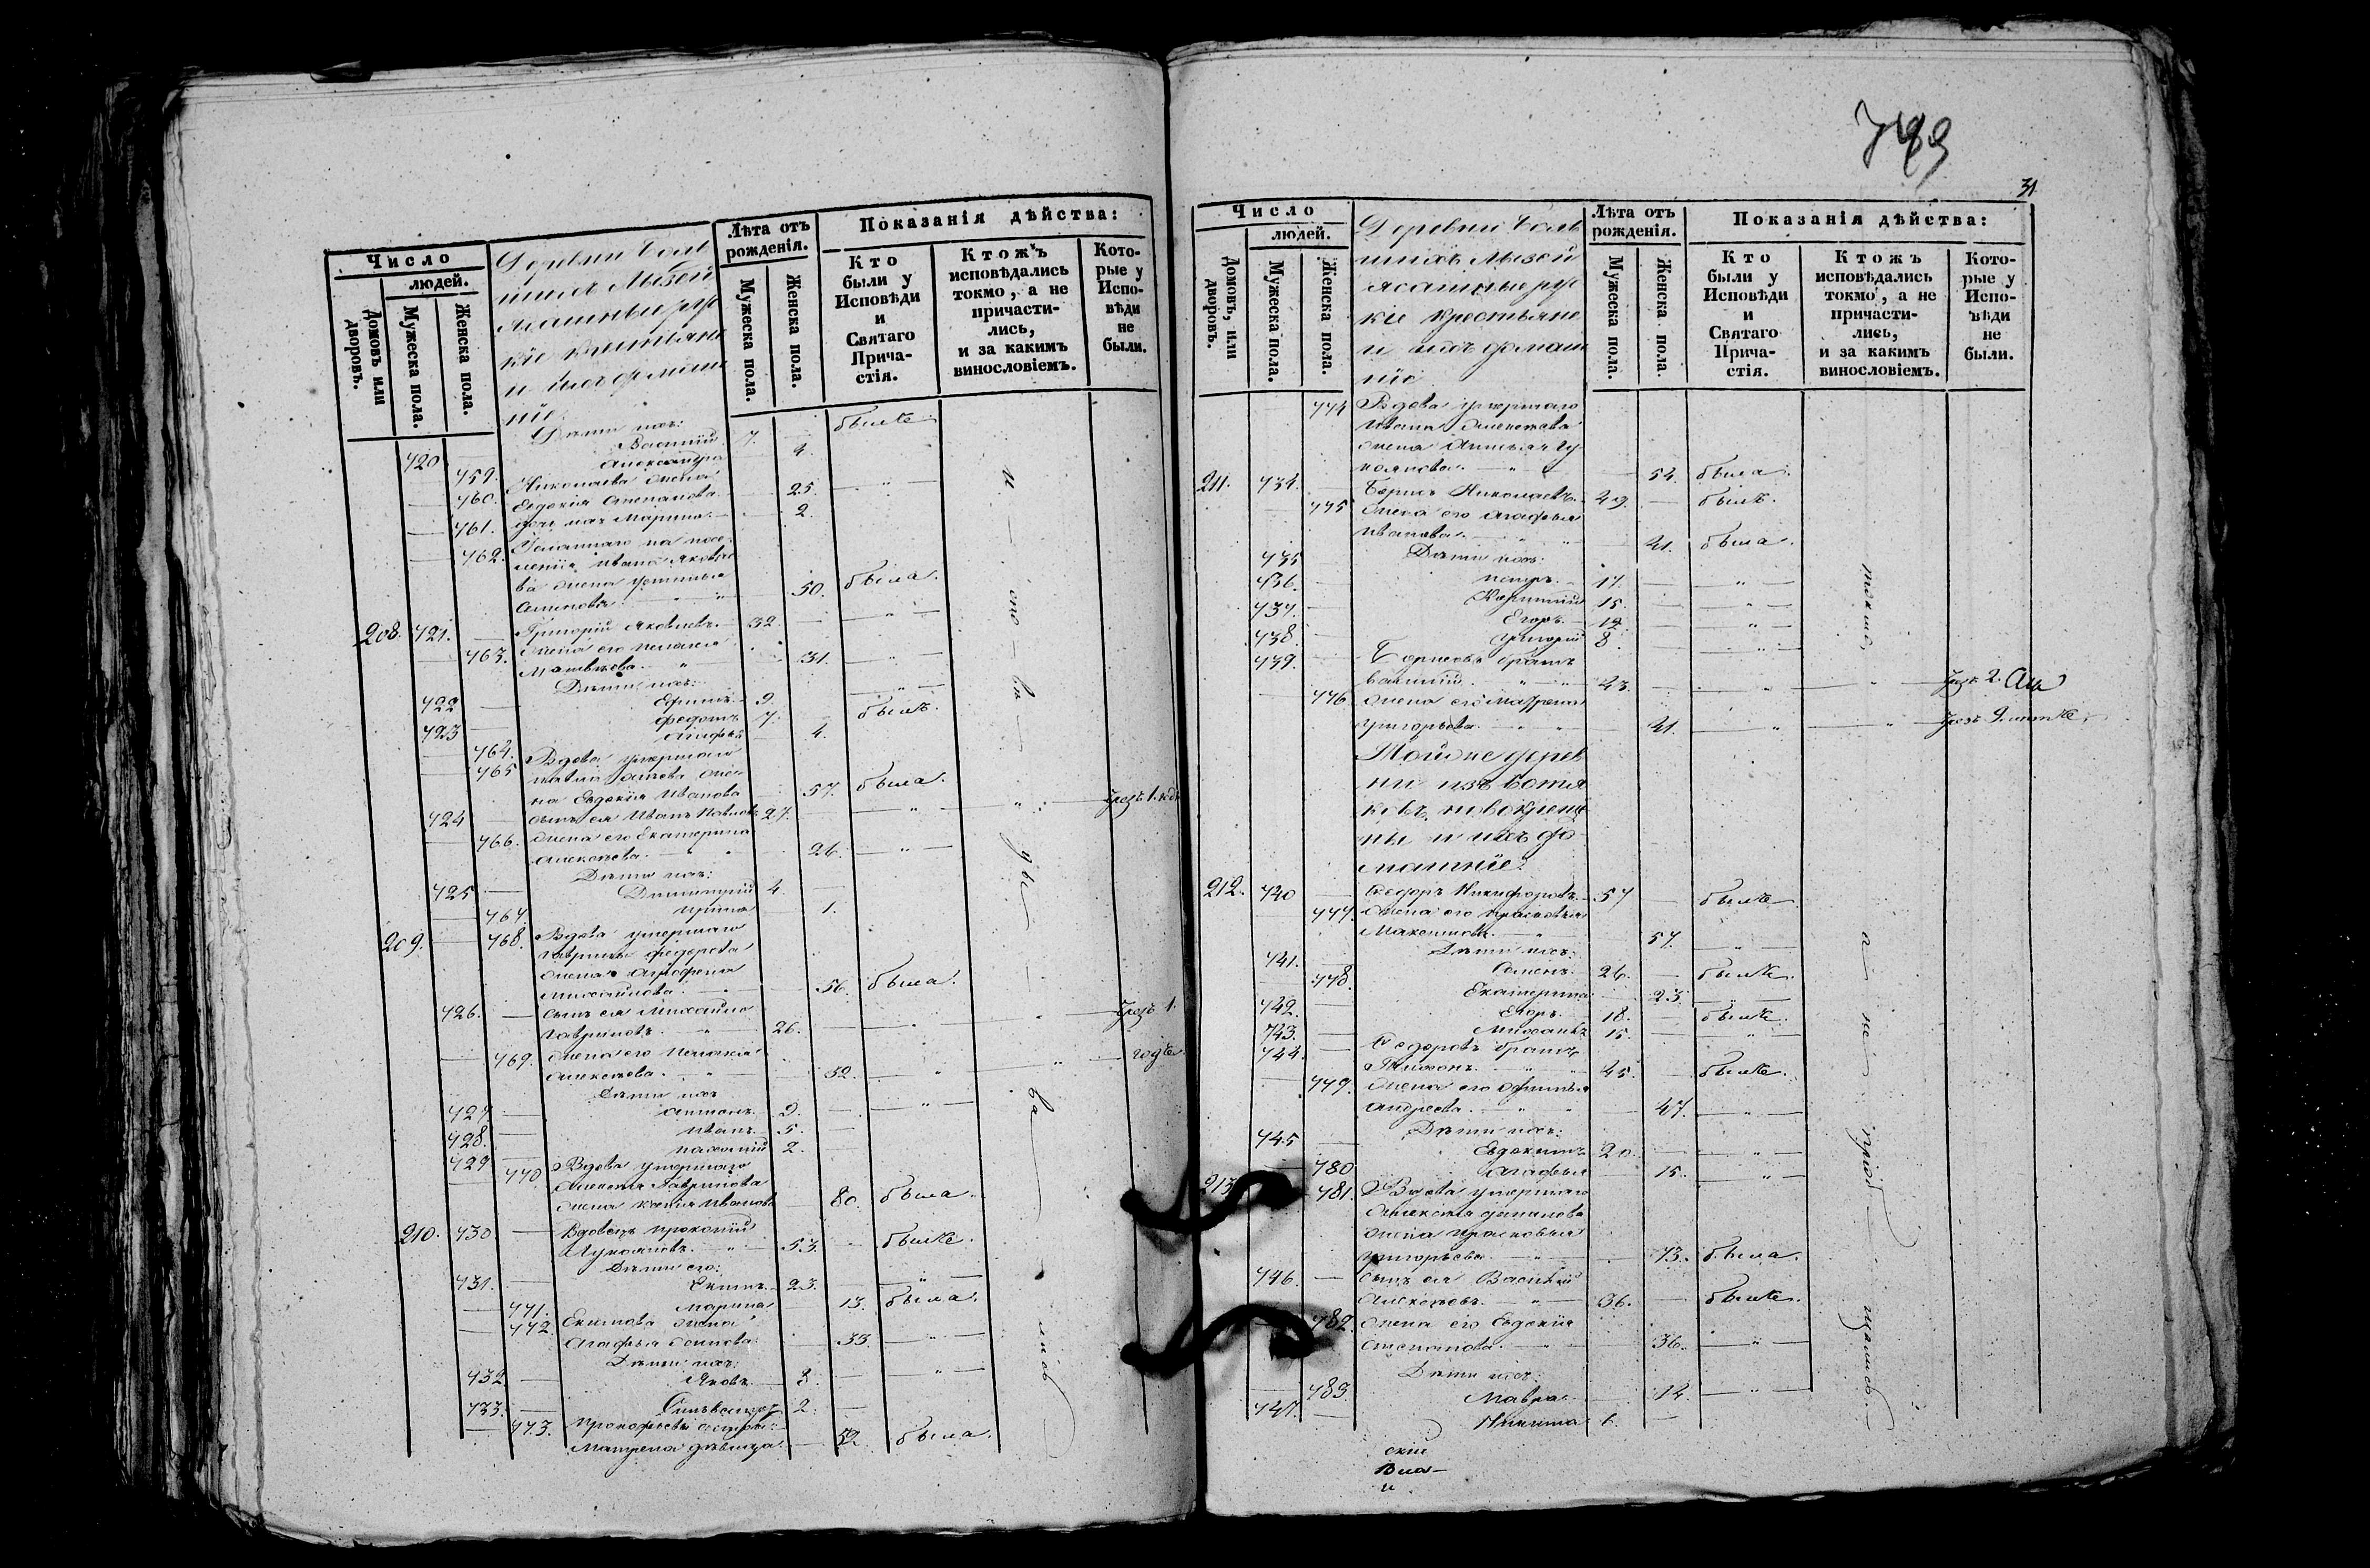 Число
людей.
Домовъ или дворовъ.
Мужеска пола.
Женска пола.
Деревни Боль
шихъ Мызей
ясашные рус
кіе крестьяне
и ихъ домаш
ніе
Лѣта отъ рожденія.
Мужеска пола.
Женска пола.
Показанія дѣйства:
Кто были у Исповѣди и Святаго Прича-стія.
Ктожъ исповѣдались токмо, а не причасти-лись, и за какимъ винословіемъ.
Кото-рые у Испо-вѣди не были.
Дѣти ихъ:
420 — Василій 7. — были
459. Александра — 4.
460. Николаева жена
Евдокія Степанова — 25. — „ —
461. дочь ихъ Марина — 2.
462. на посе
ленія Ивана Яковле
ва жена Устинья
50. была.
208. 421. — Григорій Яковлевъ 32. — „ —
463. жена его Пелагія
Матвѣева. „ 31. — „ —
Дѣти ихъ:
422 — Ефимъ. 9. — „ —
423 — Федотъ 7. былъ.
464. Агафья 4.
465 Вдова умершаго
жe
на Евдокія Иванова 57. была.
424 — сынъ ея Иванъ Павловъ 27. — „ — чрезъ 1.
466. жена его Екатерина
Алексѣева. — „ 26. — „ —
Дѣти ихъ:
425 — Димитрій 4. —
467. Ирина 1.
209. — 468. Вдова умершаго
Гаврила Федорова
жена Аграфена
Михайлова. — 56. была.
426. — сынъ ея Михайло
Гавриловъ. — „ 26. — „ — чрезъ 1.
469. жена его Пелагія
Алексѣева. — „ 32. — „ — годъ
Дѣти ихъ
427. — Антонъ. 9. — „ —
428. — Иванъ 5. —
429 — 2. —
470 Вдова умершаго
Алексѣя Гаврилова
жена Иванова 80. была.
210. 430 — Вдовецъ Прокопій
Лукояновъ. — „ — 53. — были.
Дѣти его:
431. — Екимъ 23. — „ —
471. Марина 13. была.
472. Екимова жена
Агафья Осипова 33. — „ —
Дѣти ихъ:
432 — Яковъ 8. — „ —
433. — Сильвестръ 2. —
473. Прокопьева сестра
Матрена дѣвица — 52 была.
799
31
Число
людей.
Домовъ, или дворовъ.
Мужеска пола.
Женска пола.
Деревни Боль
шихъ Мызей
ясашные рус
кіе крестьяне
и ихъ домаш
ніе
Лѣта отъ рожденія.
Мужеска пола.
Женска пола.
Показанія дѣйства:
Кто были у Исповѣди и Святаго Прича-стія.
Ктожъ исповѣдались токмо, а не причасти-лись, и за какимъ винословіемъ.
Кото-рые у Испо-вѣди не были.
474 Вдова умершаго
Ивана Алексѣева
жена Лу
коянова. — „ 54. была.
211. 434. Борисъ Николаевъ 49. — былъ.
475 жена его Агафья
Иванова. — 41. была.
Дѣти ихъ:
435 Петръ. — 17. — „ —
436. — 15. — „ —
437. — Егоръ — 12. — „ —
438. — Григорій 8. — „ —
439. — Борисовъ братъ
Василій. — „ — 43. — „ — чрезъ 2.
476 жена его Матрена
Григорьева. — „ 41. — „ — чрезъ
Той же дерев
ни изъ Вотя
ковъ новокрещ
ны и ихъ до
машніе.
212. 440 — Федоръ Никифоровъ. 57 — были
477. жена его Прасковья
Максимова. — „ 57. — „ —
Дѣти ихъ:
441. — Семенъ. 26. — были.
478. Екатерина 23. — „ —
442. — Егоръ. — 18. — были.
443. — Михаилъ 15. — „ —
444. — Федоровъ братъ
Тихонъ. — „ — 45. — были.
479. жена его Афимья
Андреева. — „ — 47. — „ —
Дѣти ихъ:
445 — Евдокимъ 20. — „ —
480 Агафья 15. — „ —
213 481. Вдова умершаго
Алексѣя
жена Прасковья
Григорьева — „ — 73. была.
446. — сынъ ея Василій
Алексѣевъ. — „ — 36. — были.
482. жена его Евдокія
Степанова. — „ 36. — „ —
Дѣти ихъ:
483. Мавра 12 — „ —
447. — Никита 6. —
скіе
Вла—
и